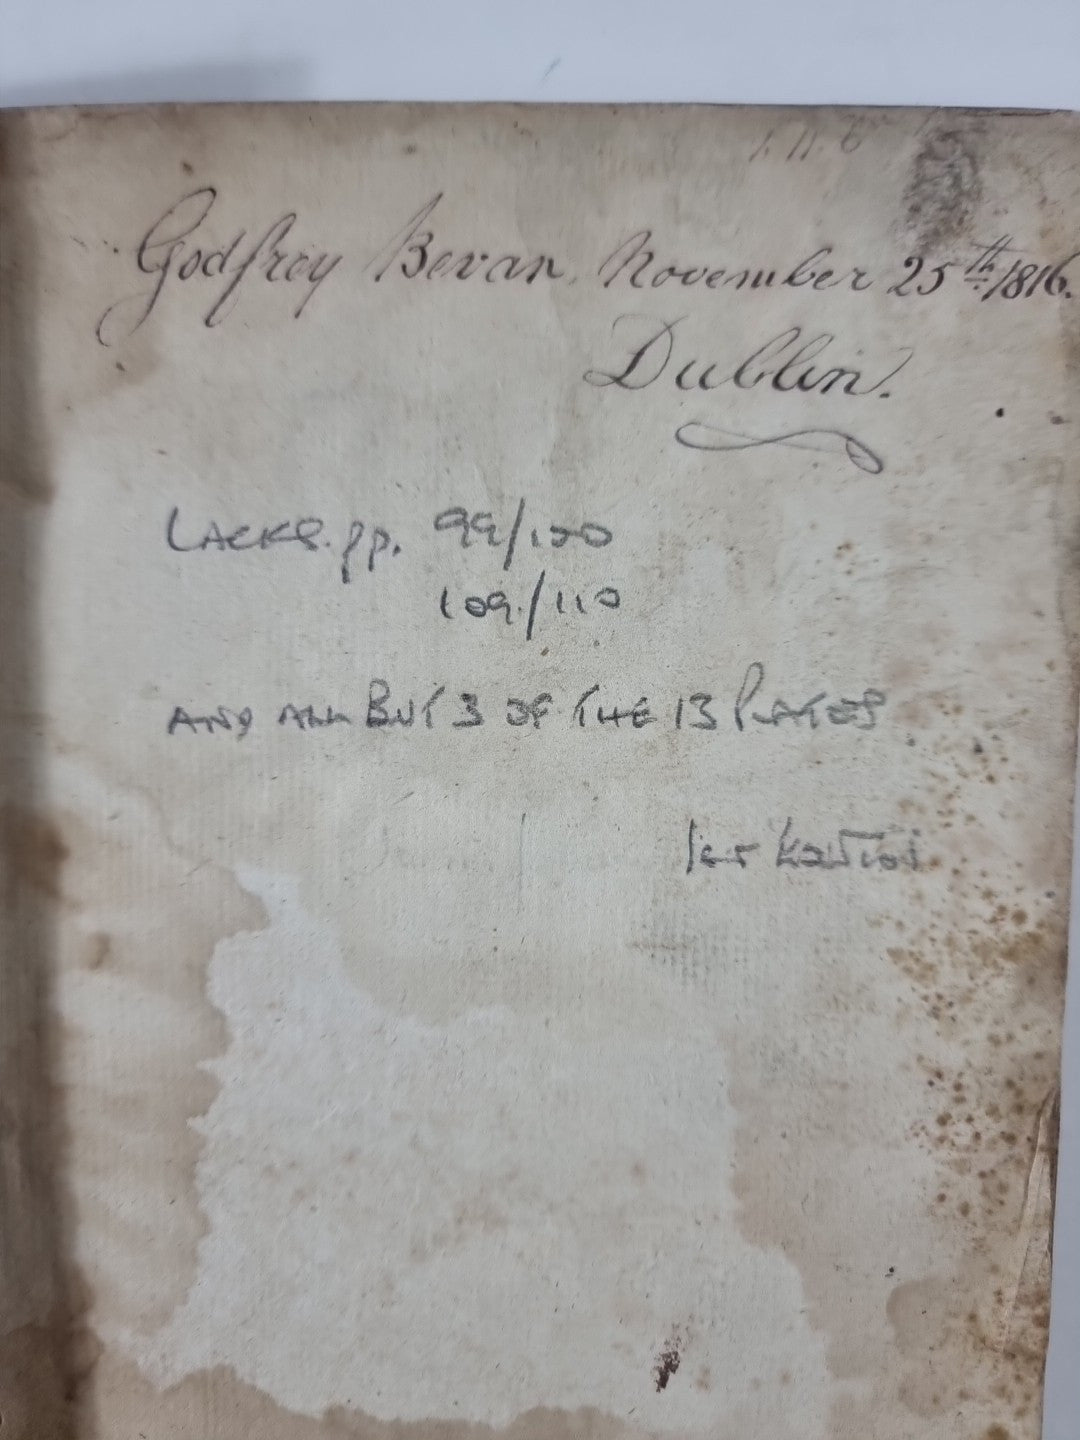 Godfrey Bevan. November 25th 1816.
Dublin.
LACKS. pp. 99/100
109/110
AND ALL BUT 3 OF THE 13 PLATES.
1st EDITION